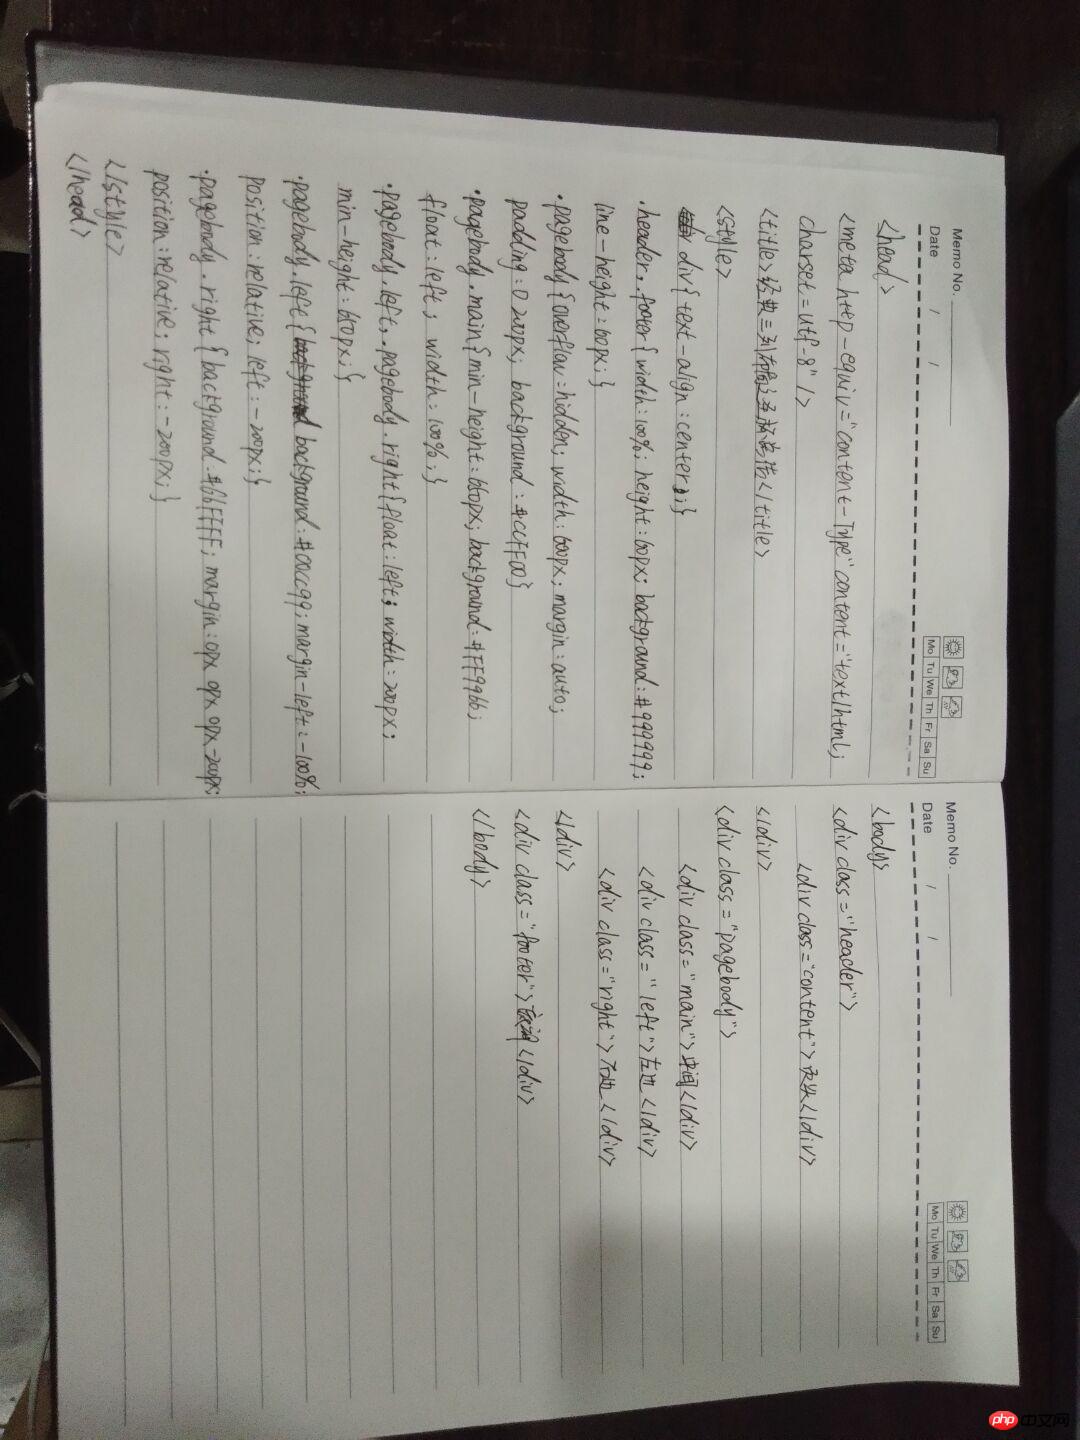 Memo No.
Date / /
Mo Tu We Th Fr Sa Su
<head>
<meta http-equiv="content-Type" content="text/html;
charset=utf-8" />
<title>经典三列布局之圣杯 </title>
<style>
div{text-align:center;}
.header,.footer{width:100%; height:60px; background:#999999;
line-height:60px;}
.pagebody{overflow:hidden; width:600px; margin:auto;
padding:0 200px; background:#CCFF00}
.pagebody.main{min-height:650px; background:#FF99bb;
float:left; width:100%;}
.pagebody.left,.pagebody.right{float:left; width:200px;
min-height:650px;}
.pagebody.left{ background:#00CC99; margin-left:-100%;
position:relative; left:-200px;}
.pagebody.right{background:#66FFFF; margin:0px 0px 0px -200px;
position:relative; right:-200px;}
</style>
</head>
Memo No.
Date / /
Mo Tu We Th Fr Sa Su
<body>
<div class="header">
<div class="content">页头</div>
</div>
<div class="pagebody">
<div class="main">中间</div>
<div class="left">左边</div>
<div class="right">右边</div>
</div>
<div class="footer"> </div>
</body>
php 中文网